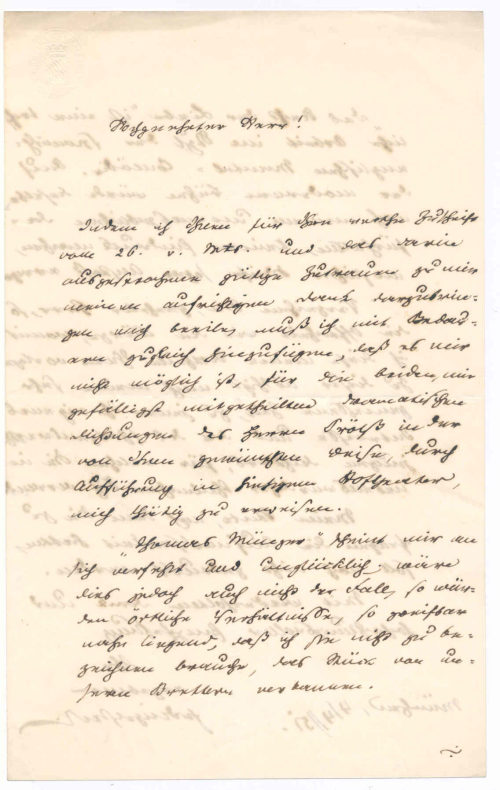 Hochgeehrter Herr!
Indem ich Ihnen für Ihre werthe Zuschrift
vom 26. v. Mts. und das darin
ausgesprochene gütige Zutrauen zu mir
meinen aufrichtigen Dank darzubrin-
gen mich beeile, muß ich mit Bedau-
ern zugleich hinzufügen, daß es mir
nicht möglich ist, für die beiden, mir
gefälligst mitgetheilten dramatischen
Dichtungen des Herrn Prölß in der
von Ihnen gewünschten Weise, durch
Aufführung in hiesigem Hoftheater,
mich thätig zu erweisen.
"Thomas Münzer" scheint mir an
sich verfehlt und unglücklich; wäre
dies jedoch auch nicht der Fall, so wür-
den örtliche Verhältnisse, so greifbar
nahe liegend, daß ich sie nicht zu be-
zeichnen brauche, das Stück von un-
sern Brettern verbannen.